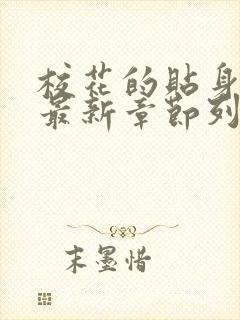 校花的貼身
最新章節列
末墨惜